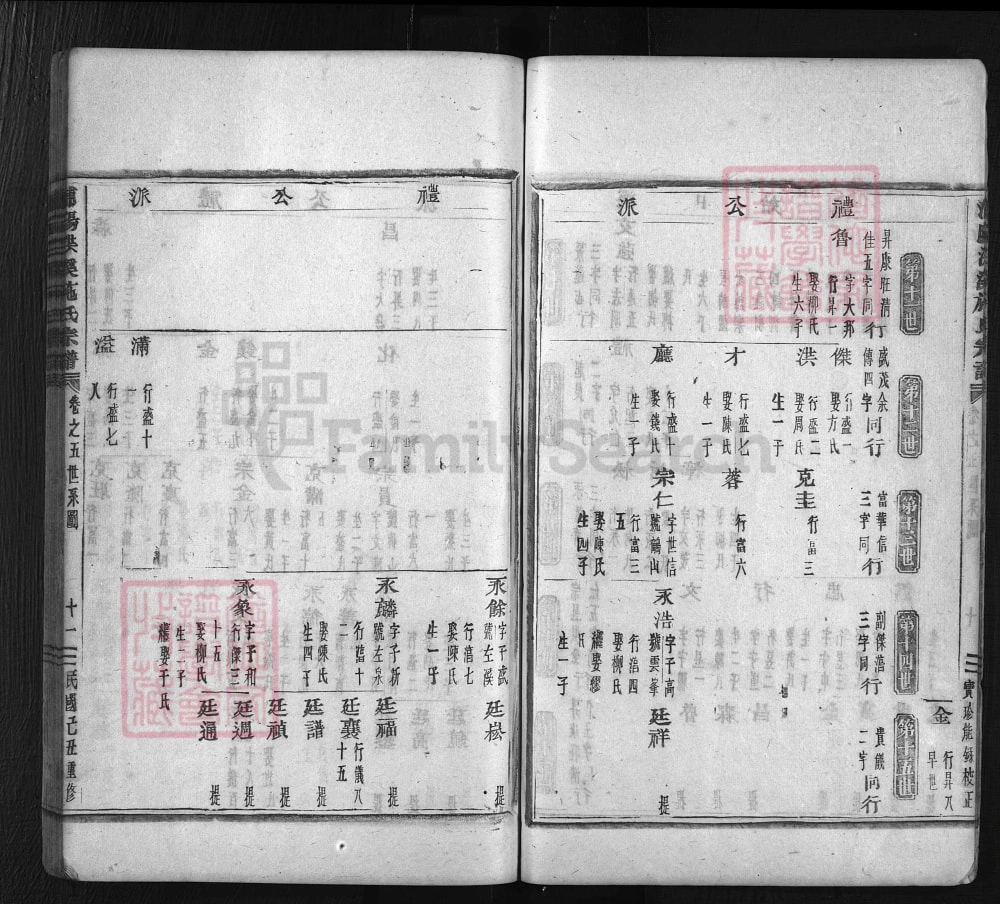 寶珍能錄校正
金
行昇八
早世
第十一世
第十二世
第十三世
第十四世
第十五世
昇康旺清
佳五字同行
盛茂余
傳四字同行
富華信
三字同行
副傑浩行
三字同行
貴儀
二字同行
禮公派
魯
字大邦
行昇一
娶柳氏
生六子
傑
行盛一
娶方氏
洪
行盛二
娶周氏
生一子
克圭
行富三
才
行盛七
娶陳氏
生一子
蓉
行富六
廳
行盛十
娶錢氏
生一子
宗仁
字世信
號鶴山
行富三
五
娶陳氏
生四子
永浩
字子高
號雲峯
行浩四
娶柳氏
繼娶繆
氏
生一子
廷祥
提
禮公派
永餘
字子武
號左溪
行浩七
娶陳氏
生一子
廷崧
提
永麟
字子新
號左泉
行浩十
二
娶陳氏
生四子
廷福
提
廷襄
行儀八
十五
廷譜
提
廷禎
提
永象
字子和
行傑三
十五
娶柳氏
生二子
繼娶于氏
廷週
提
廷通
提
滿
行盛十
溢
行盛七
人
宗譜
卷之五世系圖
十一
民國己丑重修
FamilySearch